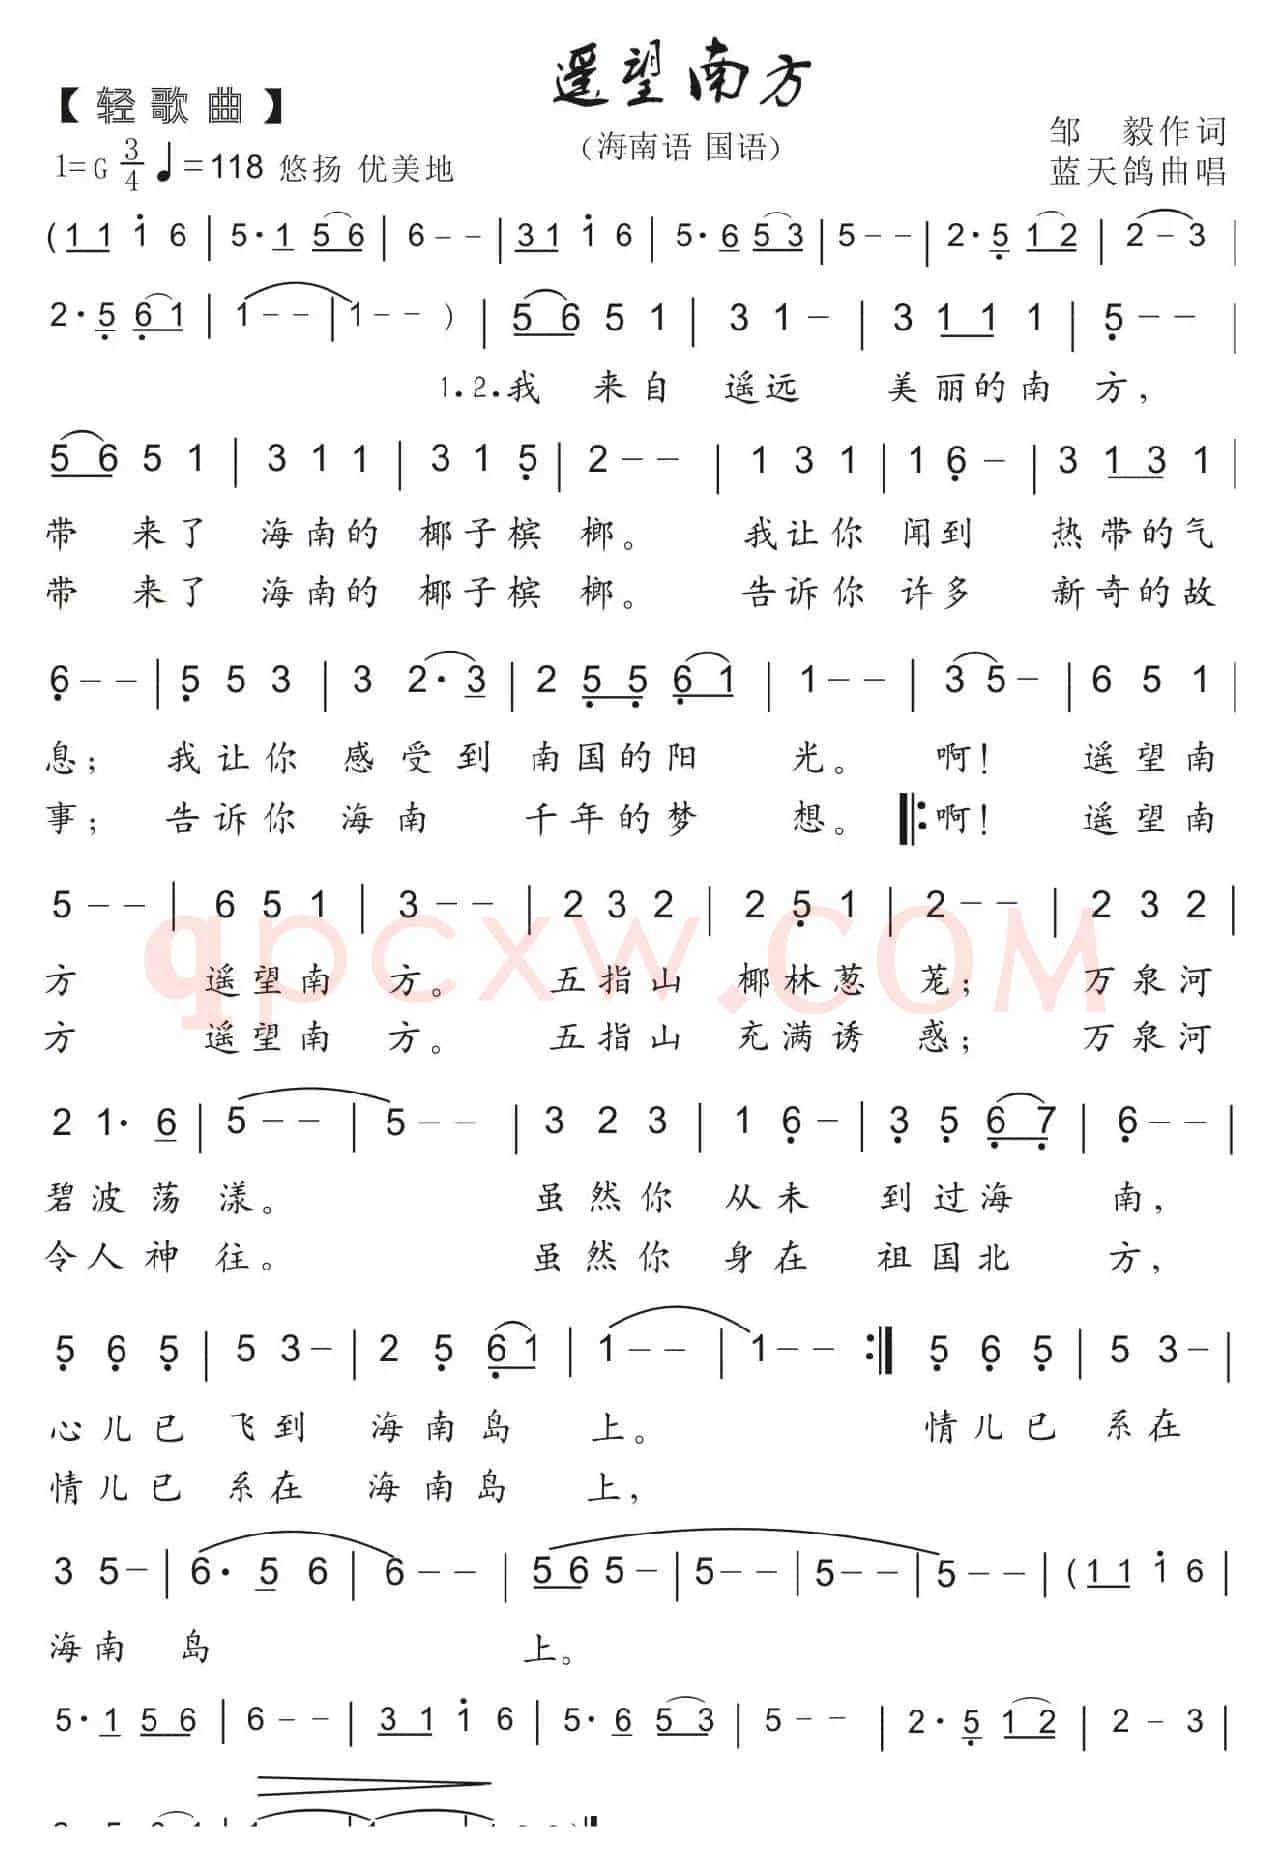 遥望南方
【轻歌曲】
(海南语 国语)
邹 毅作词
1=G 3/4 ♩=118 悠扬 优美地
蓝天鸽曲唱
(1 1 i 6 | 5· 1 5 6 | 6 - - | 3 1 i 6 | 5· 6 5 3 | 5 - - | 2· 5 1 2 | 2 - 3 |
2· 5 6 1 | 1 - - | 1 - - ) | 5 6 5 1 | 3 1 - | 3 1 1 1 | 5 - - |
1.2.我 来自 遥远 美丽的南 方,
5 6 5 1 | 3 1 1 | 3 1 5 | 2 - - | 1 3 1 | 1 6 - | 3 1 3 1 |
带 来了 海南的 椰子槟 榔。 我让你 闻到 热带的气
带 来了 海南的 椰子槟 榔。 告诉你 许多 新奇的故
6 - - | 5 5 3 | 3 2· 3 | 2 5 5 6 1 | 1 - - | 3 5 - | 6 5 1 |
息; 我让你 感受到 南国的阳 光。 啊! 遥望南
事; 告诉你 海南 千年的梦 想。 ‖: 啊! 遥望南
5 - - | 6 5 1 | 3 - - | 2 3 2 | 2 5 1 | 2 - - | 2 3 2 |
方 遥望南 方。 五指山 椰林葱 茏; 万泉河
方 遥望南 方。 五指山 充满诱 惑; 万泉河
qpcxw.COM
2 1· 6 | 5 - - | 5 - - | 3 2 3 | 1 6 - | 3 5 6 7 | 6 - - |
碧波荡 漾。 虽然你 从未 到过海 南,
令人神 往。 虽然你 身在 祖国北 方,
5 6 5 | 5 3 - | 2 5 6 1 | 1 - - | 1 - - :‖ 5 6 5 | 5 3 - |
心儿已 飞到 海南岛 上。 情儿已 系在
情儿已 系在 海南岛 上,
3 5 - | 6· 5 6 | 6 - - | 5 6 5 - | 5 - - | 5 - - | 5 - - | (1 1 i 6 |
海南 岛 上。
5· 1 5 6 | 6 - - | 3 1 i 6 | 5· 6 5 3 | 5 - - | 2· 5 1 2 | 2 - 3 |